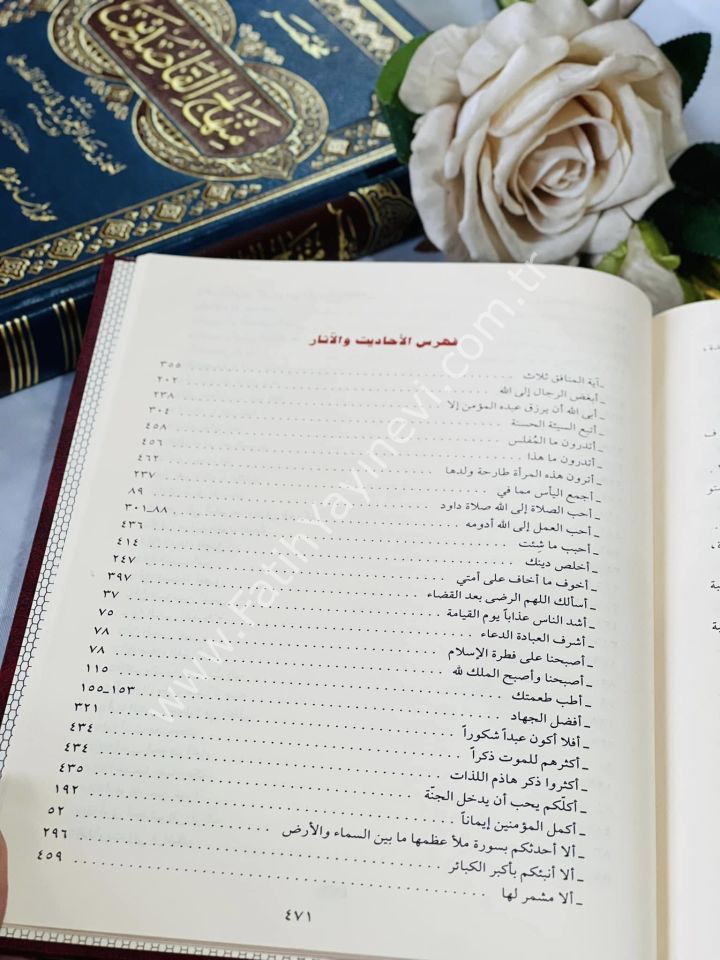 مختصر
منهاج القاصدين
فهرس الأحاديث والآثار
ـ آية المنافق ثلاث ........ ٣٥٥
ـ أبغض الرجال إلى الله ........ ٢٠٢
ـ أبى الله أن يرزق عبده المؤمن إلا ........ ٢٣٨
ـ أتبع السيئة الحسنة ........ ٣٠٤
ـ أتدرون ما المُفلس ........ ٤٥٨
ـ أتدرون ما هذا ........ ٤٥٦
ـ أترون هذه المرأة طارحة ولدها ........ ٤٦٢
ـ أجمع اليأس مما في ........ ٢٣٧
ـ أحب الصلاة إلى الله صلاة داود ........ ٨٩
ـ أحب العمل إلى الله أدومه ........ ٨٨ـ٣٠١
ـ أحبب ما شِئت ........ ٤٣٦
ـ أخلص دينك ........ ٤١٤
ـ أخوف ما أخاف على أمتي ........ ٢٤٧
ـ أسألك اللهم الرضى بعد القضاء ........ ٣٩٧
ـ أشد الناس عذاباً يوم القيامة ........ ٣٧
ـ أشرف العبادة الدعاء ........ ٧٥
ـ أصبحنا على فطرة الإسلام ........ ٧٨
ـ أصبحنا وأصبح الملك لله ........ ٧٨
ـ أطب طعمتك ........ ١١٥
ـ أفضل الجهاد ........ ١٥٣ـ١٥٥
ـ أفلا أكون عبداً شكوراً ........ ٣٢١
ـ أكثرهم للموت ذكراً ........ ٤٣٤
ـ أكثروا ذكر هاذم اللذات ........ ٤٣٤
ـ أكلّكم يحب أن يدخل الجنّة ........ ٤٣٥
ـ أكمل المؤمنين إيماناً ........ ١٩٢
ـ ألا أحدثكم بسورة ملأ عظمها ما بين السماء والأرض ........ ٥٢
ـ ألا أنبئكم بأكبر الكبائر ........ ٢٩٦
ـ ألا مشمر لها ........ ٤٥٩
٤٧١
www.FatihYayinevi.com.tr